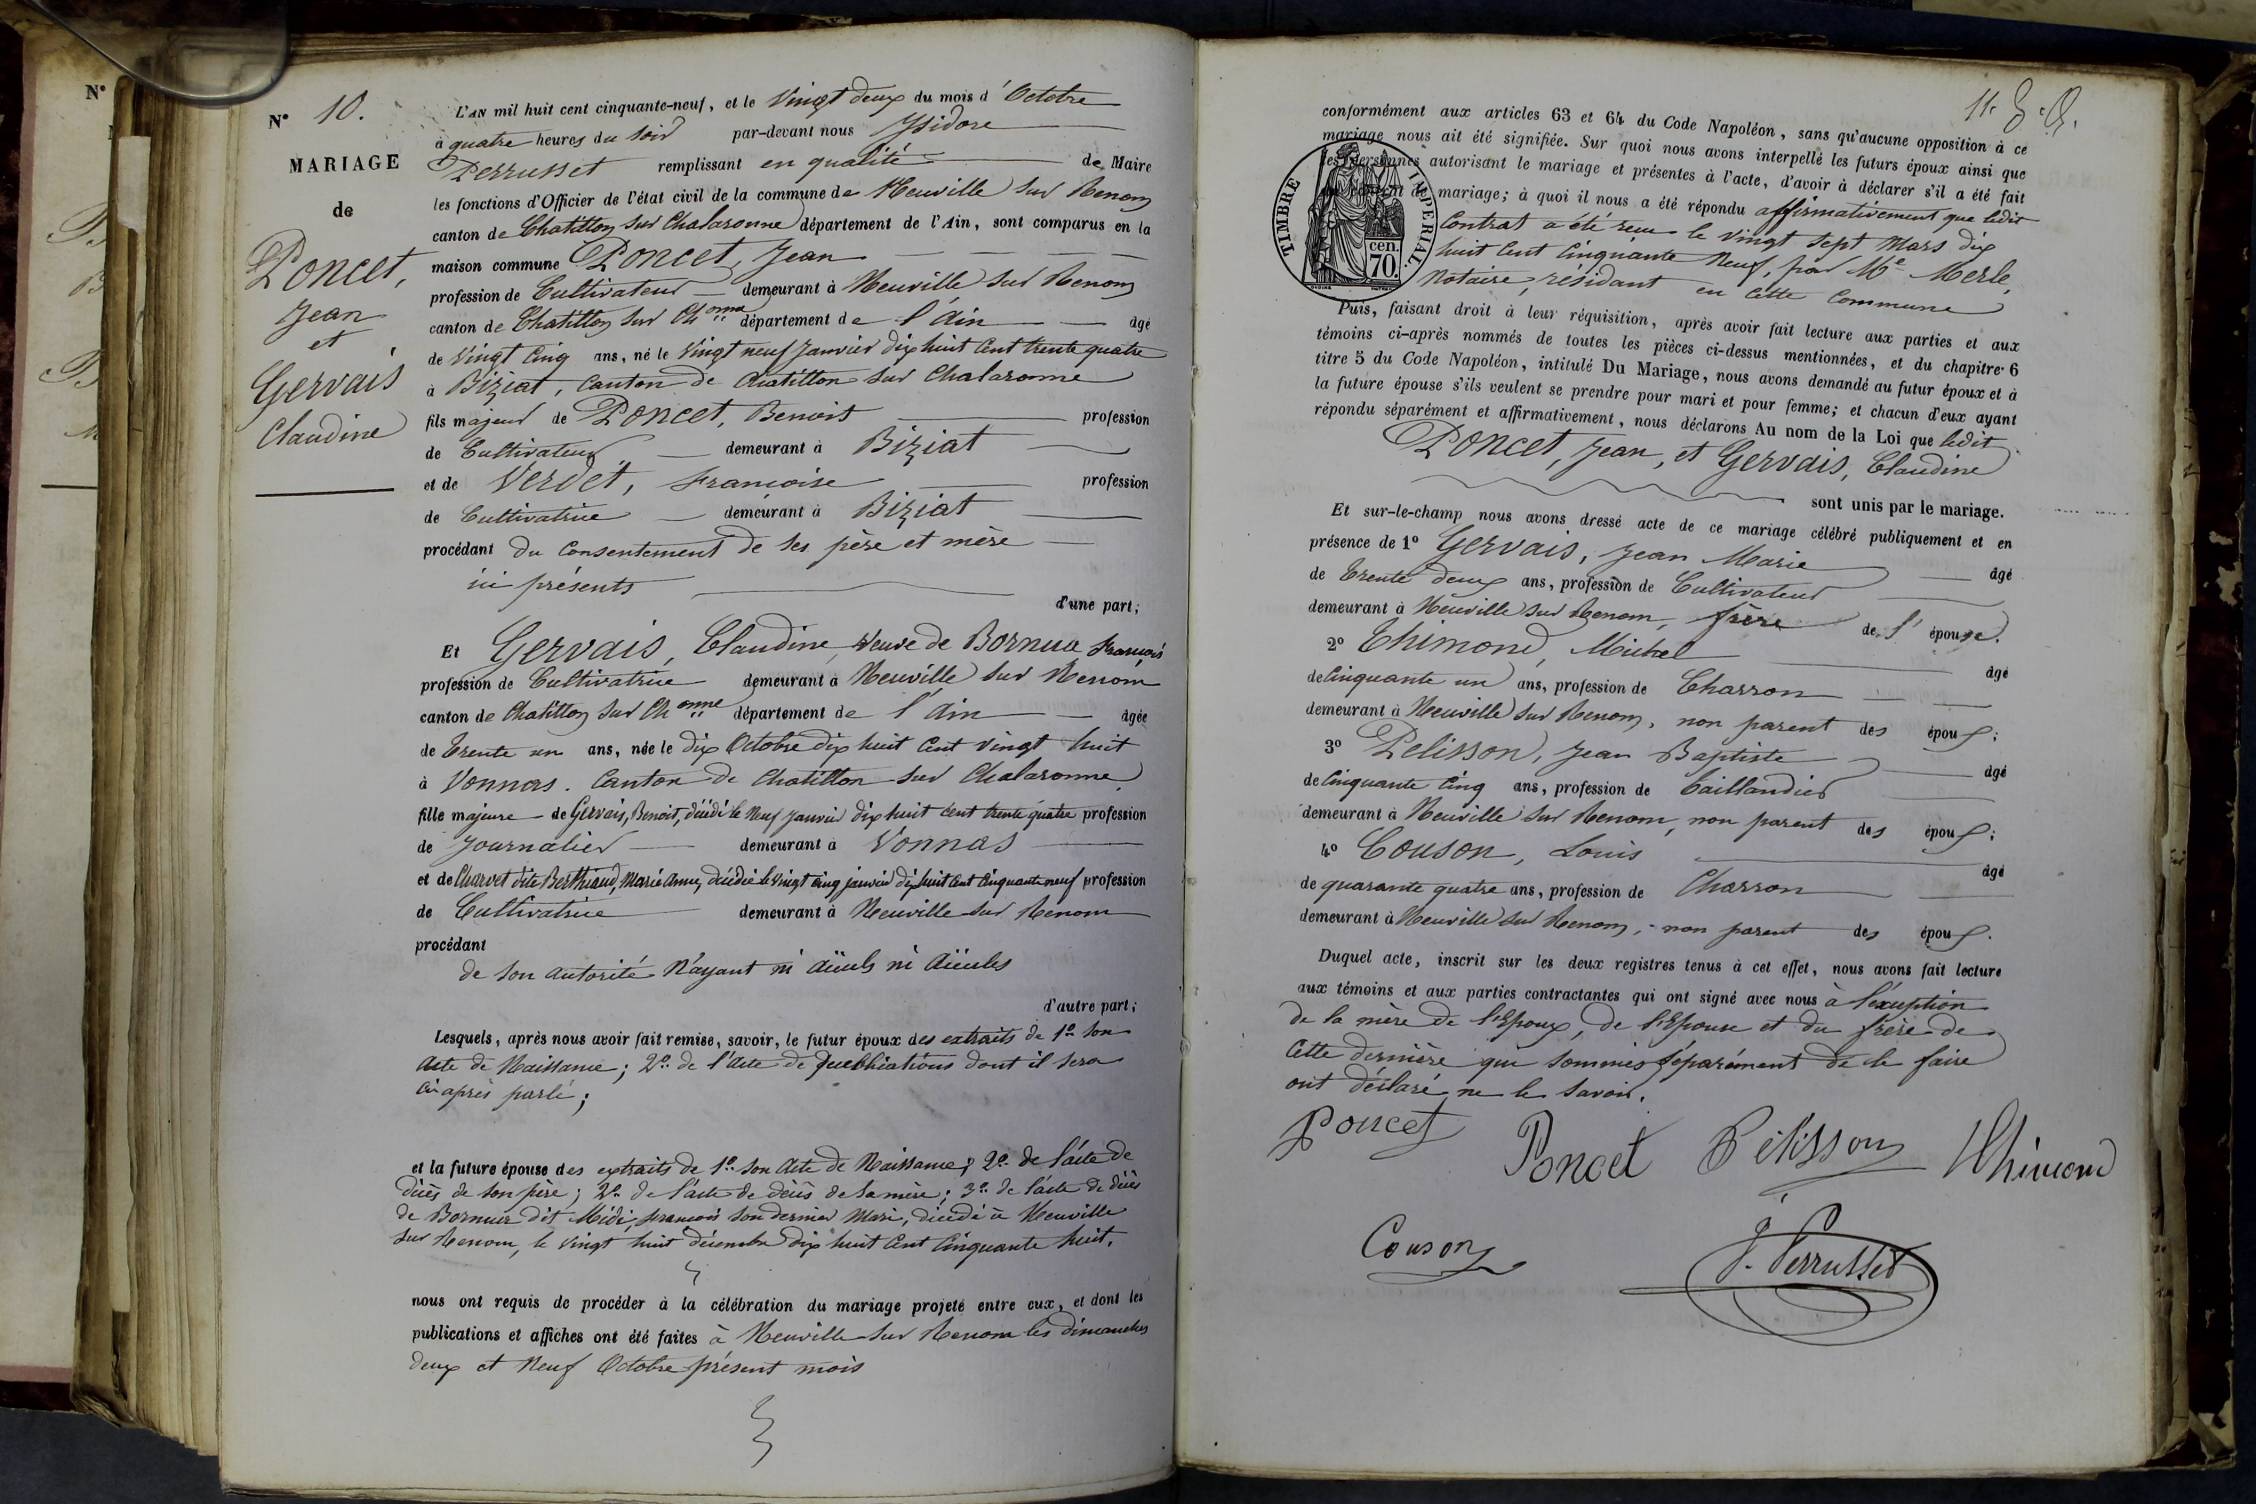 N°
N° 10.
MARIAGE
de
Poncet,
Jean
et
Gervais
Claudine
L'AN mil huit cent cinquante-neuf, et le Vingt deux du mois d'Octobre
à quatre heures du soir par-devant nous Isidore
Perrusset remplissant en qualité de Maire
les fonctions d'Officier de l'état civil de la commune de Neuville sur Renom
canton de Chatillon sur Chalaronne département de l'Ain, sont comparus en la
maison commune Poncet, Jean
profession de Cultivateur demeurant à Neuville sur Renom
canton de Chatillon sur Chonne département de l'Ain âgé
de Vingt Cinq ans, né le Vingt neuf Janvier dix huit Cent trente quatre
à Biziat, Canton de Chatillon sur Chalaronne
fils majeur de Poncet, Benoit profession
de Cultivateur demeurant à Biziat
et de Verdet, Françoise profession
de Cultivatrice demeurant à Biziat
procédant du Consentement de ses père et mère
ici présents
d'une part;
Et Gervais, Claudine, veuve de Bornua François
profession de Cultivatrice demeurant à Neuville sur Renom
canton de Chatillon sur Chonne département de l'Ain âgée
de Trente un ans, née le dix Octobre dix huit Cent vingt huit
à Vonnas. Canton de Chatillon sur Chalaronne
fille majeure de Gervais, Benoit, décédé le Neuf Janvier dix huit Cent trente quatre profession
de Journalier demeurant à Vonnas
et de Charvet dite Berthiaud, Marie Anne, décédée le Vingt Cinq janvier dix huit Cent Cinquante neuf profession
de Cultivatrice demeurant à Neuville sur Renom
procédant
de son autorité N'ayant ni aïeuls ni Aïeules
d'autre part;
Lesquels, après nous avoir fait remise, savoir, le futur époux des extraits de 1° son
acte de Naissance; 2° de l'Acte de Puebliations dont il sera
ci après parlé;
et la future épouse des extraits de 1° son Acte de Naissance; 2° de l'acte de
décès de son père; 2° de l'acte de décès de sa mère; 3° de l'acte de décès
de Bornua dit Midi, françois son dernier Mari, décédé à Neuville
sur Renom, le vingt huit décembre dix huit Cent Cinquante huit.
nous ont requis de procéder à la célébration du mariage projeté entre eux, et dont les
publications et affiches ont été faites à Neuville sur Renom les dimanches
deux et Neuf Octobre présent mois
conformément aux articles 63 et 64 du Code Napoléon, sans qu'aucune opposition à ce
mariage nous ait été signifiée. Sur quoi nous avons interpellé les futurs époux ainsi que
les personnes autorisant le mariage et présentes à l'acte, d'avoir à déclarer s'il a été fait
de mariage; à quoi il nous a été répondu affirmativement que ledit
Contrat a été reçu le vingt sept Mars dix
huit Cent Cinquante Neuf, par Me Merle,
Notaire, résidant en cette Commune
TIMBRE IMPERIAL.
cen.
70.
Puis, faisant droit à leur réquisition, après avoir fait lecture aux parties et aux
témoins ci-après nommés de toutes les pièces ci-dessus mentionnées, et du chapitre 6
titre 5 du Code Napoléon, intitulé Du Mariage, nous avons demandé au futur époux et à
la future épouse s'ils veulent se prendre pour mari et pour femme; et chacun d'eux ayant
répondu séparément et affirmativement, nous déclarons Au nom de la Loi que ledit
Poncet, Jean, et Gervais, Claudine
sont unis par le mariage.
Et sur-le-champ nous avons dressé acte de ce mariage célébré publiquement et en
présence de 1° Gervais, Jean Marie âgé
de Trente deux ans, profession de Cultivateur
demeurant à Neuville sur Renom, frère de l'épouse.
2° Thimond, Michel âgé
de Cinquante un ans, profession de Charron
demeurant à Neuville sur Renom, non parent des époux;
3° Pelisson, Jean Baptiste âgé
de Cinquante Cinq ans, profession de Taillandier
demeurant à Neuville sur Renom, non parent des époux;
4° Couson, Louis âgé
de quarante quatre ans, profession de Charron
demeurant à Neuville sur Renom, non parent des époux.
Duquel acte, inscrit sur les deux registres tenus à cet effet, nous avons fait lecture
aux témoins et aux parties contractantes qui ont signé avec nous à l'exeuption
de la mère de l'Epoux, de l'Epouse et du frère de
cette dernière qui sommés séparément de le faire
ont déclaré ne le savoir.
Poncet Poncet Pélisson Thimond
Couson J. Perrusset